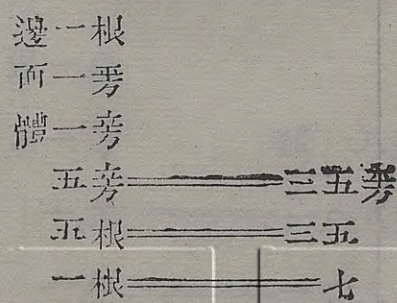 邊一根
面一平方
體一立方
五立方═══三五平方
五根═══三五
一根═══七